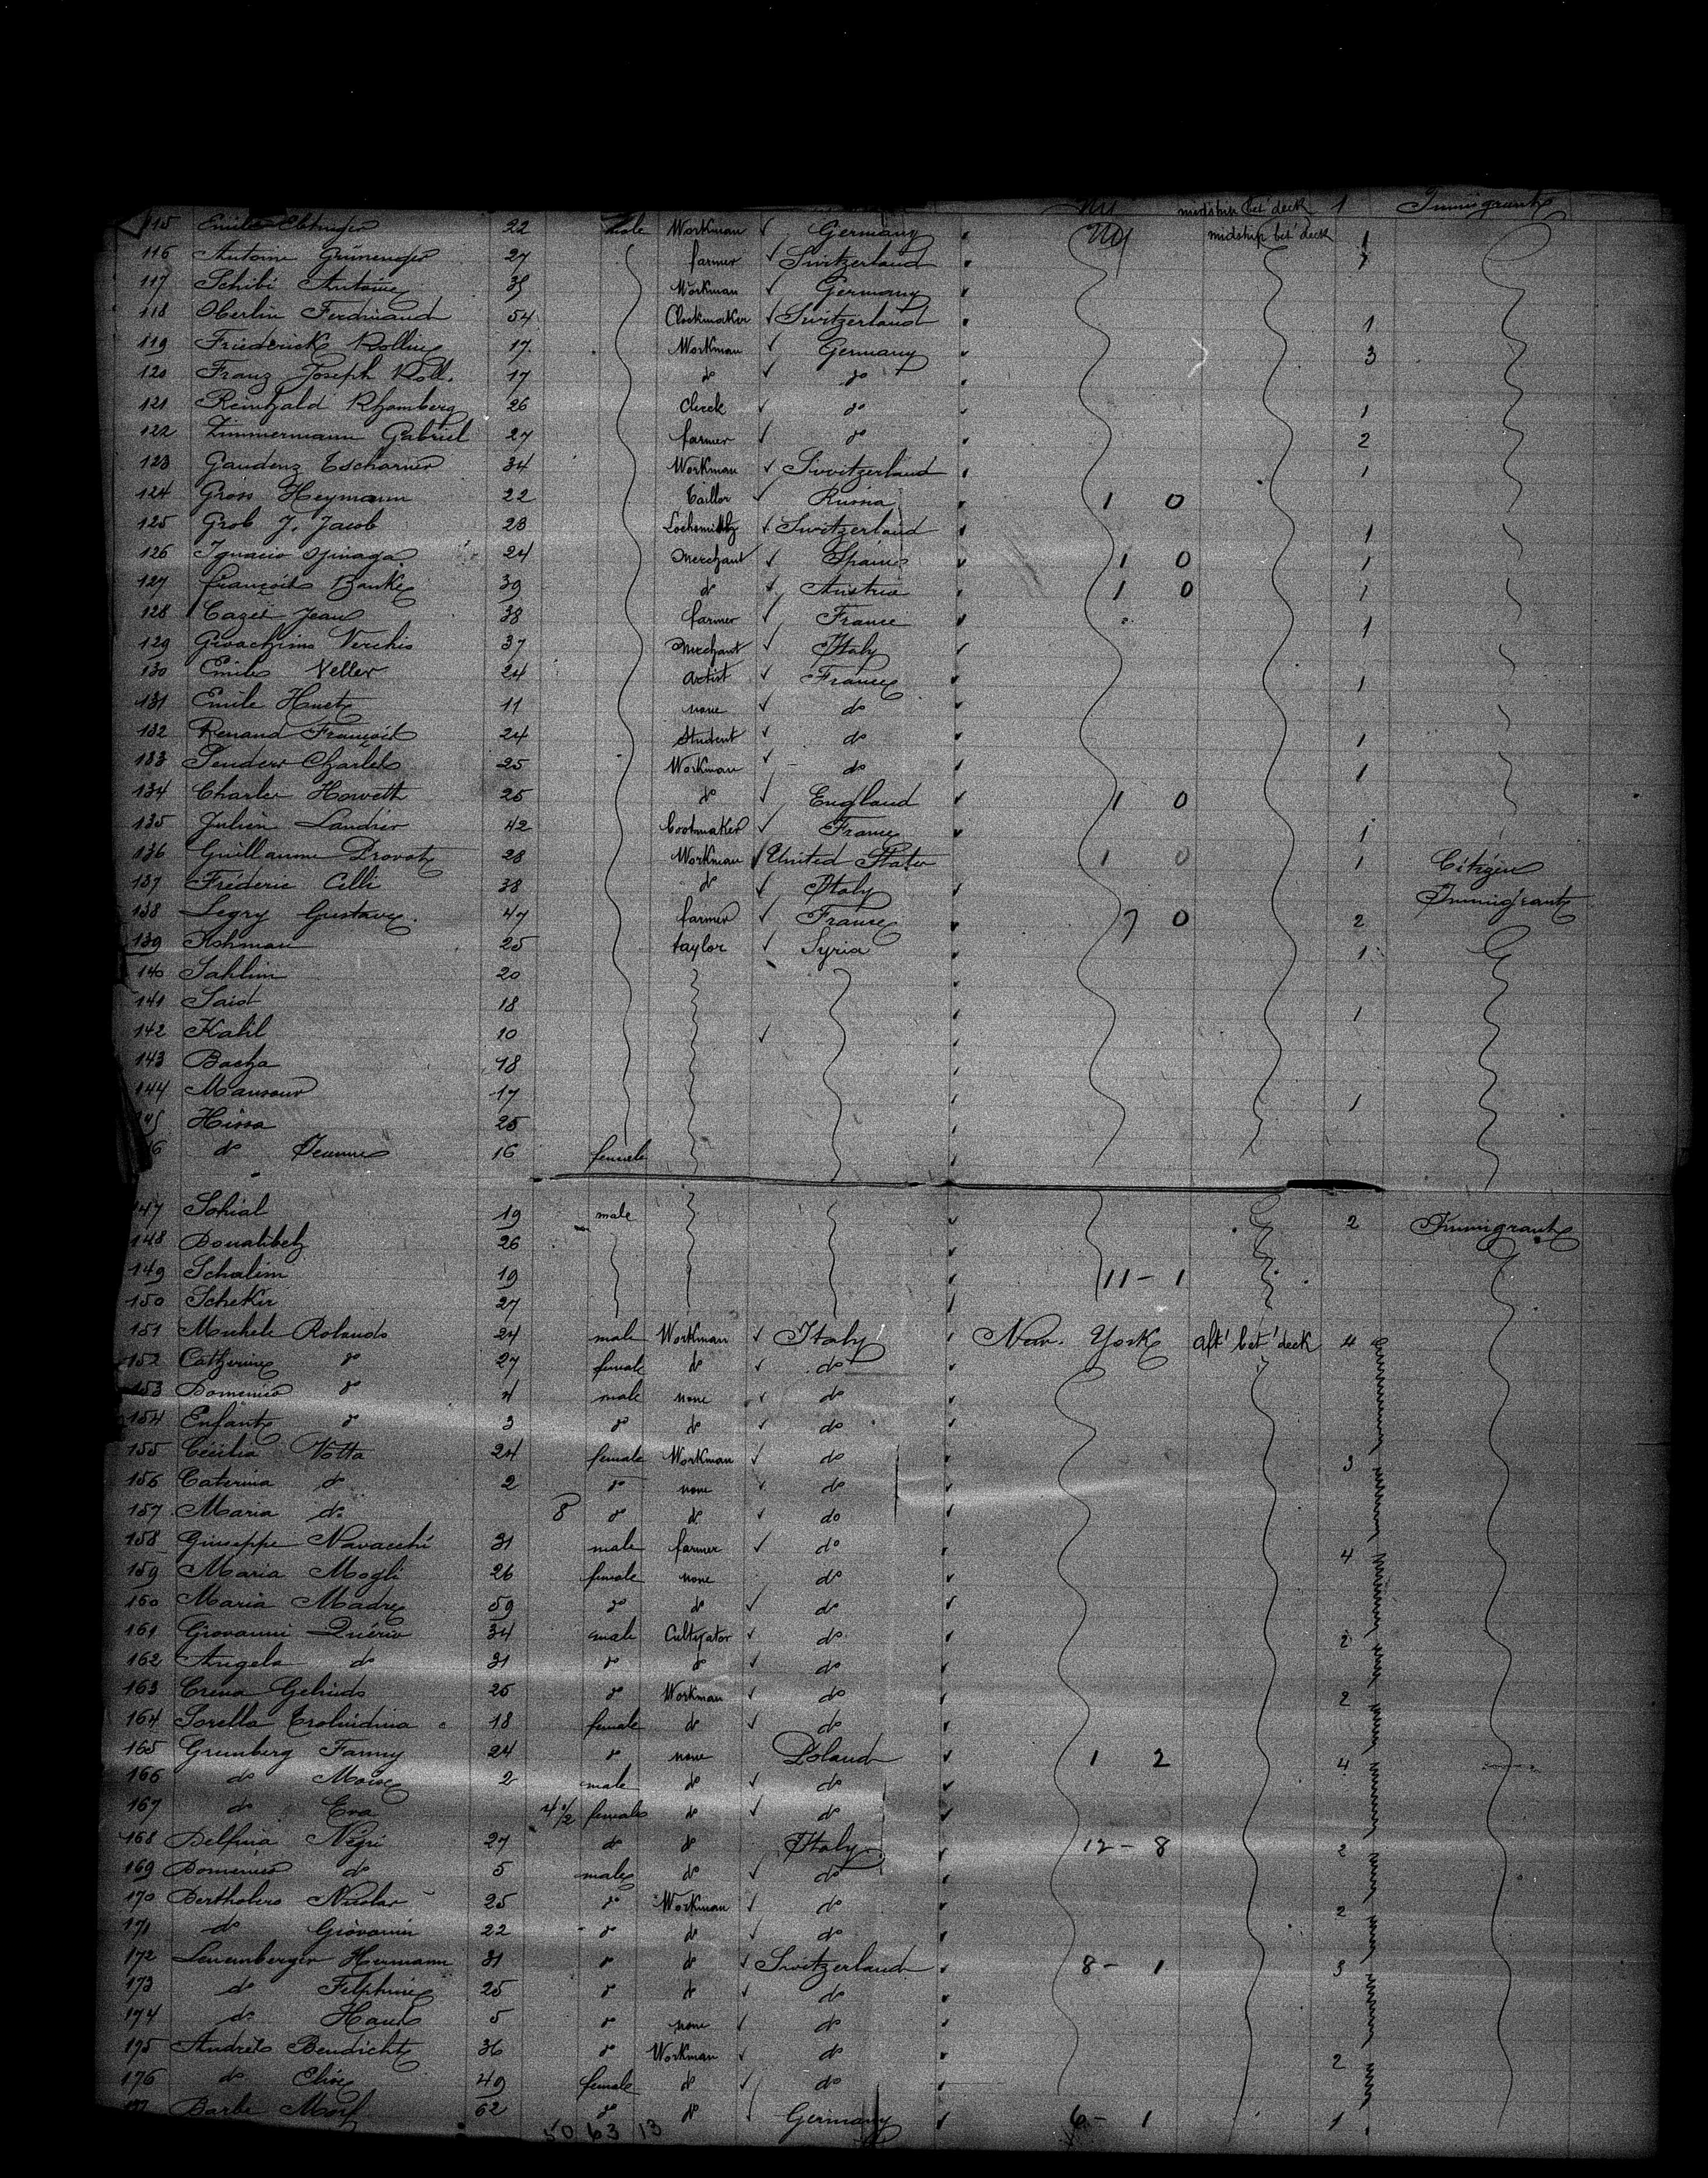 midship bet' deck 1 Immigrant
115 Emile 22 male Workman Germany NY midship bet' deck 1
116 Antoine 27 farmer Switzerland 1
117 Schibi Antoine Workman Germany
118 Oberlin Ferdinand 54 Clockmaker Switzerland 1
119 Friederick 17 Workman Germany 3
120 Franz Joseph Roll. 17 do do
121 Reinhald Rhomberg 26 Clerck do 1
122 Zimmermann Gabriel 27 farmer do 2
123 Gaudenz Tscharner 34 Workman Switzerland 1
124 Gross Heymann 22 taillor Russia 1 0
125 Grob J. Jacob 23 Switzerland 1
126 Ignacio 24 Merchant Spain 1 0 1
127 François 39 do Austria 1 0 1
128 Cazet Jean 38 farmer France 1
129 Gioachimo Verchio 37 Merchant Italy
130 Emile Veller 24 artist France 1
131 Emile Huet 11 none do
132 Renaud François 24 Student do 1
133 Charles 25 Workman do 1
134 Charles Howett 25 do England 1 0
135 Julien Landrier 42 bootmaker France 1
136 Guillaume Provot 28 Workman United States 1 0 1 Citizen
137 Fréderic Celli 38 do Italy Immigrant
138 Legry Gustave. 47 farmer France 7 0 2
139 25 taylor Syria 1
140 Sahlim 20
141 Said 18 1
142 Kalil 10
143 Bacha 18
144 Mansour 17 1
Hissa 25
do Jeanne 16 female
147 Sohial 19 male 2 Immigrant
148 26
149 Schalim 19 11 - 1
150 Schekir 27
151 Michele Rolando 24 male Workman Italy New York aft' bet' deck 4
152 Catherine do 27 female do do
153 Domenico do 4 male none do
154 Enfant do 3 do do do
155 Cécilia Votta 24 female Workman do 3
156 Caterina do 2 do none do
157 Maria do 8 do do do
158 Giuseppe Navacchi 31 male farmer do 4
159 Maria Mogli 26 female none do
160 Maria Madre 59 do do do
161 Giovanni Quério 34 male Cultivator do 2
162 Angelo do 31 do do do
163 Gelindo 25 do Workman do 2
164 Sorella 18 female do do
165 Grunberg Fanny 24 do none Poland 1 2 4
166 do Moise 2 male do do
167 do Eva 4 1/2 female do do
168 Delfina Négri 27 do do Italy 12 - 8 2
169 Domenico do 5 male do do
170 Nicolas 25 do Workman do 2
171 do Giovanni 22 do do do
172 Leuenberger Hermann 31 do do Switzerland 8 - 1 3
173 do 25 do do do
174 do Hans 5 do none do
175 Andrés Bendicht 36 do Workman do 2
176 do Elise 49 female do do
Barbe 62 do do Germany 6 - 1 1
50 63 13